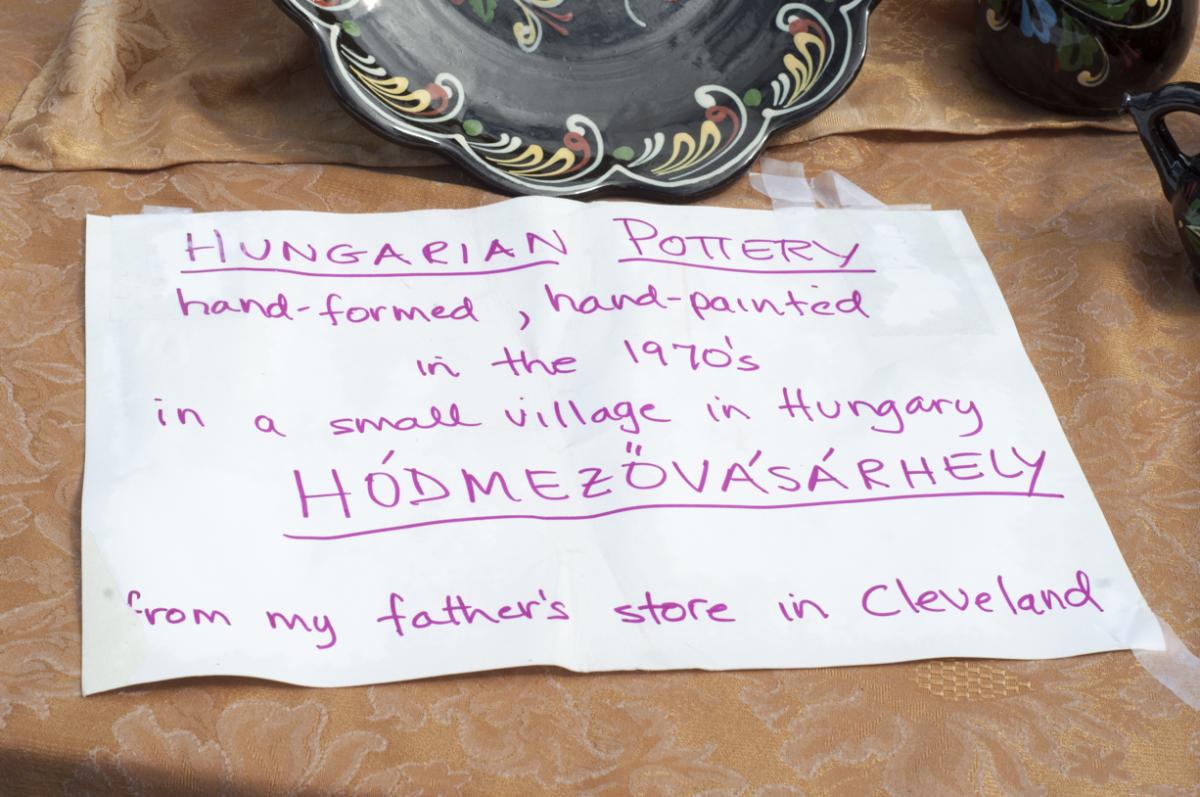 HUNGARIAN POTTERY
hand-formed, hand-painted
in the 1970's
in a small village in Hungary
HÓDMEZŐVÁSÁRHELY
from my father's store in Cleveland